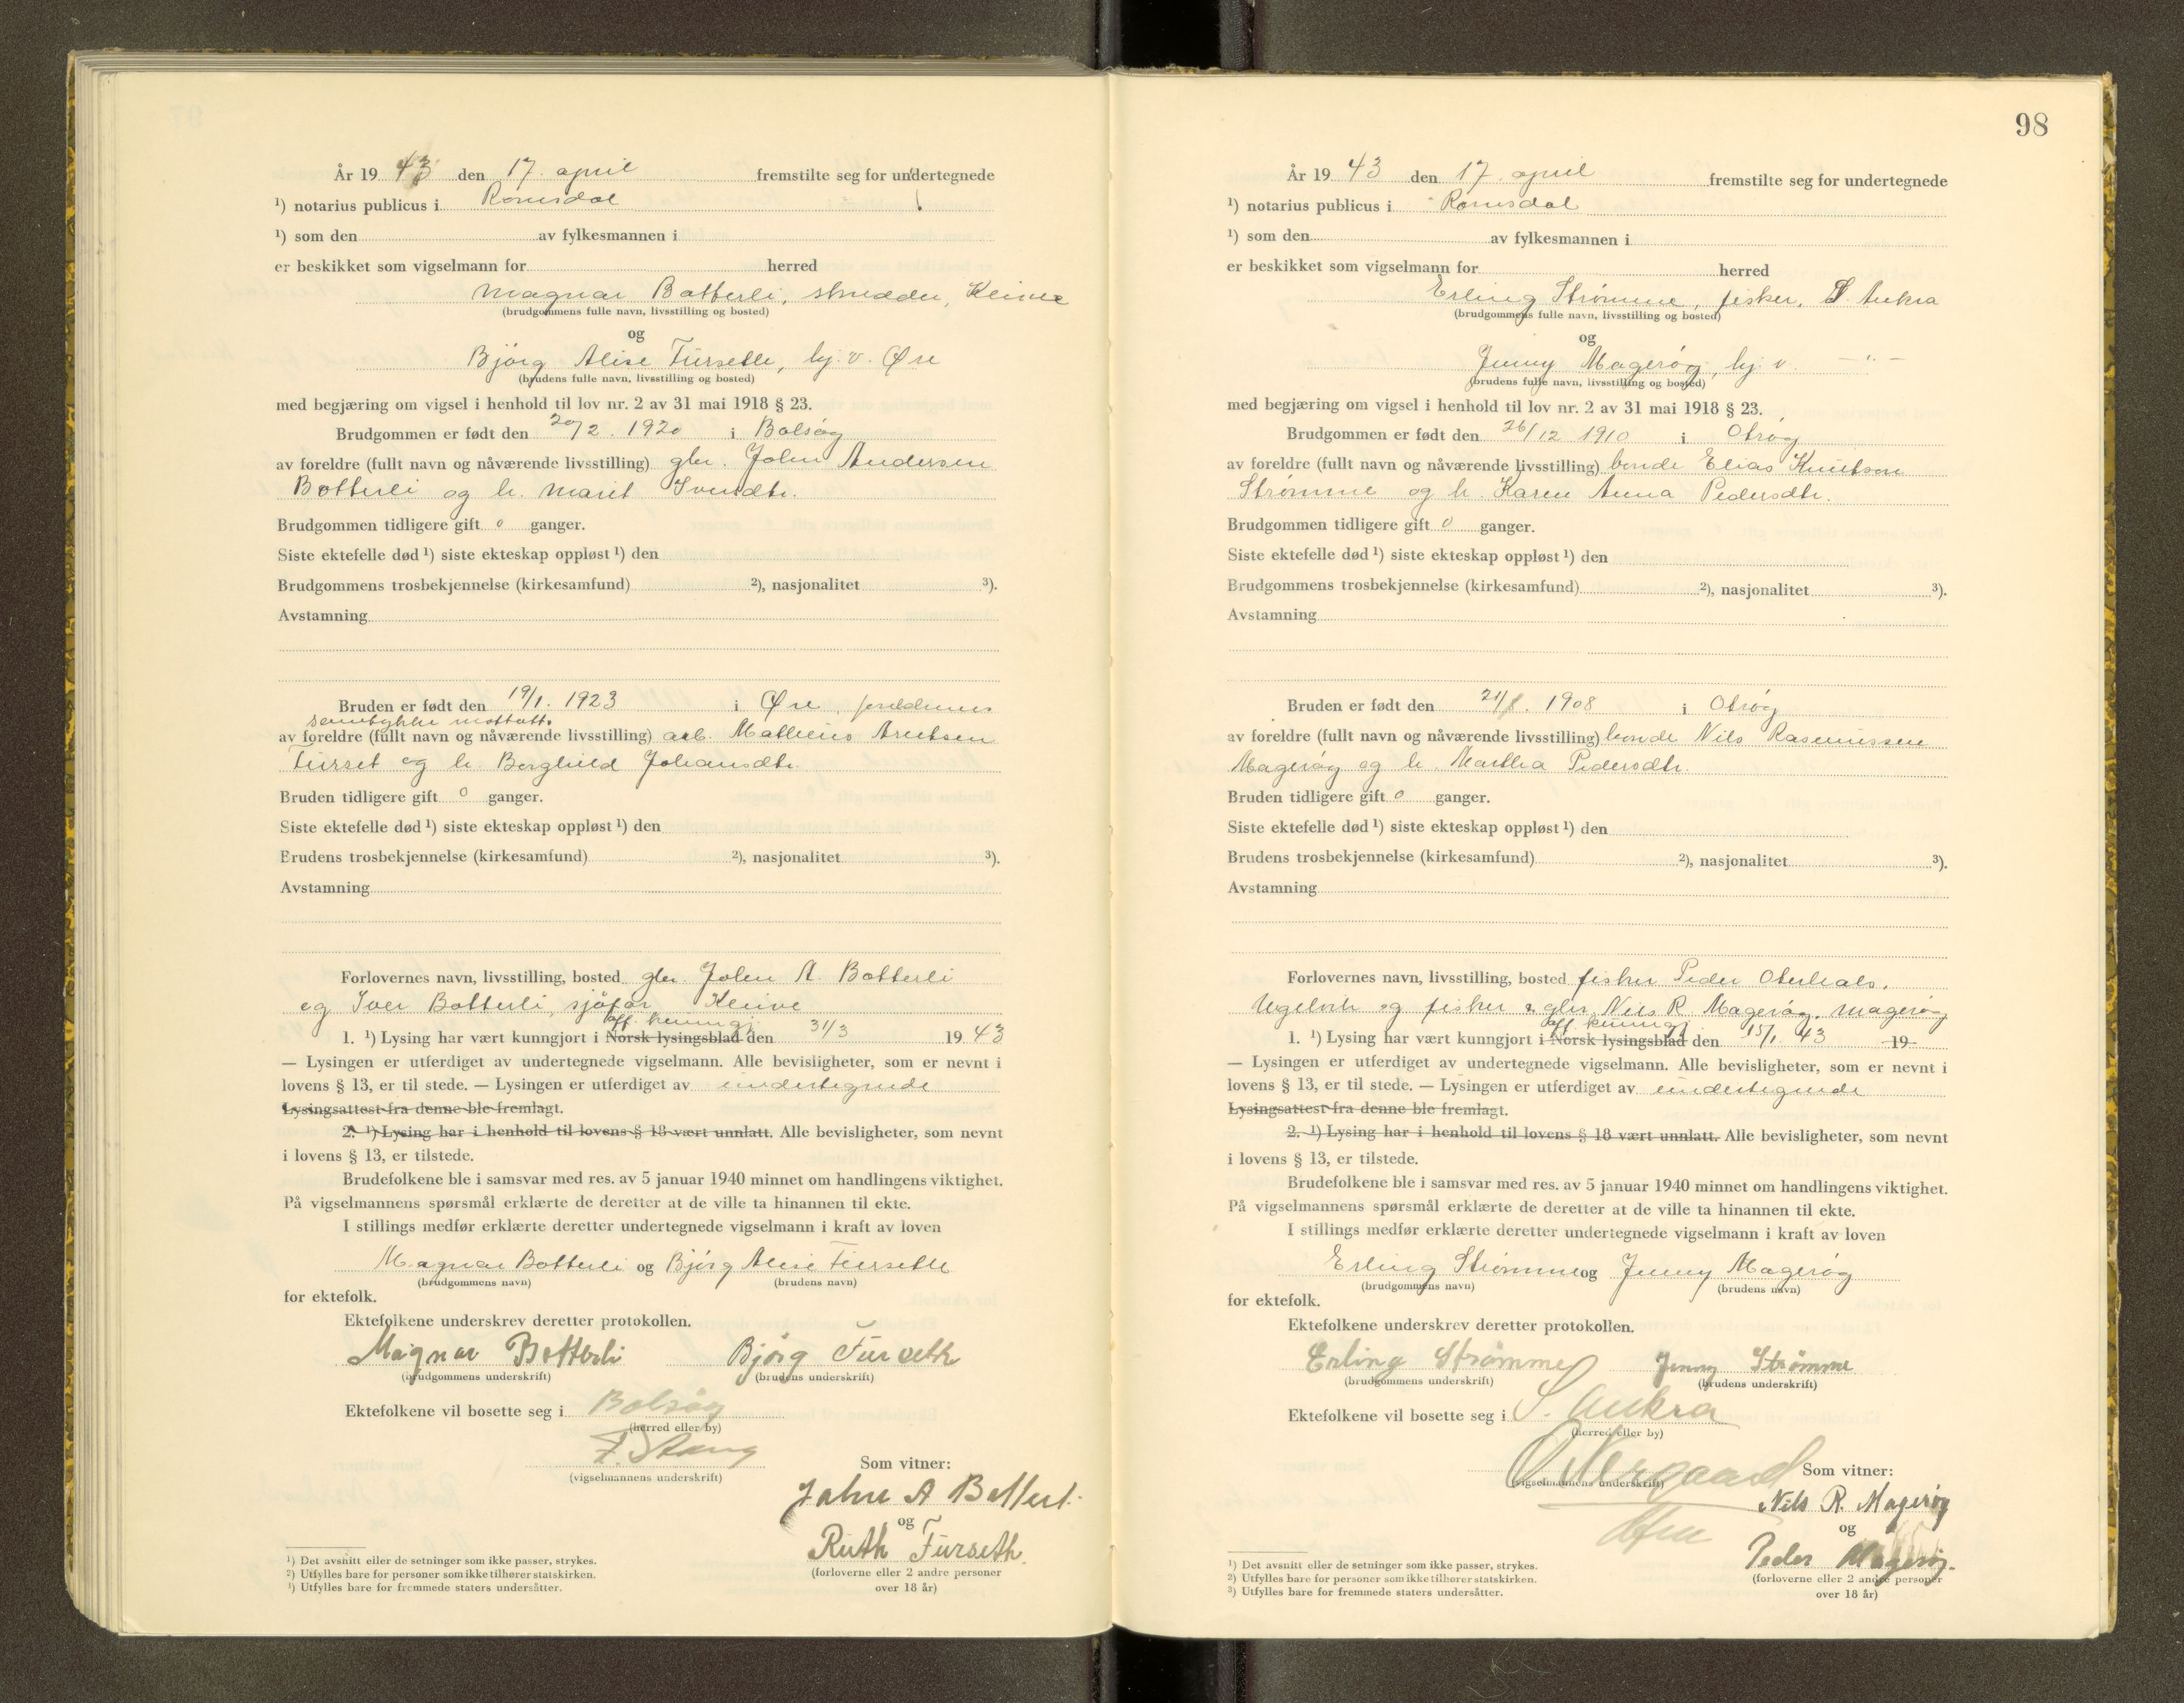 År 19 43 den 17. april fremstilte seg for undertegnede
¹) notarius publicus i Romsdal
¹) som den av fylkesmannen i
er beskikket som vigselmann for herred
Magnar Botterli, skredder, Kleive
(brudgommens fulle navn, livsstilling og bosted)
og
Bjørg Alise Furseth, hj. v. Øre
(brudens fulle navn, livsstilling og bosted)
med begjæring om vigsel i henhold til lov nr. 2 av 31 mai 1918 § 23.
Brudgommen er født den 20/2. 1920 i Bolsøy
av foreldre (fullt navn og nåværende livsstilling) gbr. John Andersen
Botterli og h. Marit Iversdtr.
Brudgommen tidligere gift 0 ganger.
Siste ektefelle død ¹) siste ekteskap oppløst ¹) den
Brudgommens trosbekjennelse (kirkesamfund) ²), nasjonalitet ³).
Avstamning
Bruden er født den 19/1. 1923 i Øre, foreldrenes
samtykke mottatt.
av foreldre (fullt navn og nåværende livsstilling) arb. Matheus Arntsen
Furset og h. Borghild Johansdtr.
Bruden tidligere gift 0 ganger.
Siste ektefelle død ¹) siste ekteskap oppløst ¹) den
Brudens trosbekjennelse (kirkesamfund) ²), nasjonalitet ³).
Avstamning
Forlovernes navn, livsstilling, bosted gbr. John A. Botterli
og Iver Botterli, sjåfør, Kleive
off. kunngj.
1. ¹) Lysing har vært kunngjort i Norsk lysingsblad den 31/3 19 43
— Lysingen er utferdiget av undertegnede vigselmann. Alle bevisligheter, som er nevnt i
lovens § 13, er til stede. — Lysingen er utferdiget av undertegnede
Lysingsattest fra denne ble fremlagt.
2. ¹) Lysing har i henhold til lovens § 18 vært unnlatt. Alle bevisligheter, som nevnt
i lovens § 13, er tilstede.
Brudefolkene ble i samsvar med res. av 5 januar 1940 minnet om handlingens viktighet.
På vigselmannens spørsmål erklærte de deretter at de ville ta hinannen til ekte.
I stillings medfør erklærte deretter undertegnede vigselmann i kraft av loven
Magnar Botterli og Bjørg Alise Furseth
(brudgommens navn) (brudens navn)
for ektefolk.
Ektefolkene underskrev deretter protokollen.
Magnar Botterli Bjørg Furseth
(brudgommens underskrift) (brudens underskrift)
Ektefolkene vil bosette seg i Bolsøy
(herred eller by)
F. Stang
(vigselmannens underskrift)
Som vitner:
John A Botterli
og
Ruth Furseth.
(forloverne eller 2 andre personer
over 18 år)
¹) Det avsnitt eller de setninger som ikke passer, strykes.
²) Utfylles bare for personer som ikke tilhører statskirken.
³) Utfylles bare for fremmede staters undersåtter.
98
År 19 43 den 17. april fremstilte seg for undertegnede
¹) notarius publicus i Romsdal
¹) som den av fylkesmannen i
er beskikket som vigselmann for herred
Erling Strømme, fisker, S. Aukra
(brudgommens fulle navn, livsstilling og bosted)
og
Jenny Magerøy, hj. v. —"—
(brudens fulle navn, livsstilling og bosted)
med begjæring om vigsel i henhold til lov nr. 2 av 31 mai 1918 § 23.
Brudgommen er født den 26/12 1910 i Otrøy
av foreldre (fullt navn og nåværende livsstilling) bonde Elias Knutsen
Strømme og h. Karen Anna Pedersdtr.
Brudgommen tidligere gift 0 ganger.
Siste ektefelle død ¹) siste ekteskap oppløst ¹) den
Brudgommens trosbekjennelse (kirkesamfund) ²), nasjonalitet ³).
Avstamning
Bruden er født den 21/8. 1908 i Otrøy
av foreldre (fullt navn og nåværende livsstilling) bonde Nils Rasmussen
Magerøy og h. Martha Pedersdtr.
Bruden tidligere gift 0 ganger.
Siste ektefelle død ¹) siste ekteskap oppløst ¹) den
Brudens trosbekjennelse (kirkesamfund) ²), nasjonalitet ³).
Avstamning
Forlovernes navn, livsstilling, bosted fisker Peder Oterhals,
Ugelvik og fisker & gbr. Nils R. Magerøy, Magerøy
off. kunngj.
1. ¹) Lysing har vært kunngjort i Norsk lysingsblad den 15/1. 43 19
— Lysingen er utferdiget av undertegnede vigselmann. Alle bevisligheter, som er nevnt i
lovens § 13, er til stede. — Lysingen er utferdiget av undertegnede
Lysingsattest fra denne ble fremlagt.
2. ¹) Lysing har i henhold til lovens § 18 vært unnlatt. Alle bevisligheter, som nevnt
i lovens § 13, er tilstede.
Brudefolkene ble i samsvar med res. av 5 januar 1940 minnet om handlingens viktighet.
På vigselmannens spørsmål erklærte de deretter at de ville ta hinannen til ekte.
I stillings medfør erklærte deretter undertegnede vigselmann i kraft av loven
Erling Strømme og Jenny Magerøy
(brudgommens navn) (brudens navn)
for ektefolk.
Ektefolkene underskrev deretter protokollen.
Erling Strømme Jenny Strømme
(brudgommens underskrift) (brudens underskrift)
Ektefolkene vil bosette seg i S. Aukra
(herred eller by)
(vigselmannens underskrift)
Som vitner:
Nils R. Magerøy
og
Peder Magerøy.
(forloverne eller 2 andre personer
over 18 år)
¹) Det avsnitt eller de setninger som ikke passer, strykes.
²) Utfylles bare for personer som ikke tilhører statskirken.
³) Utfylles bare for fremmede staters undersåtter.